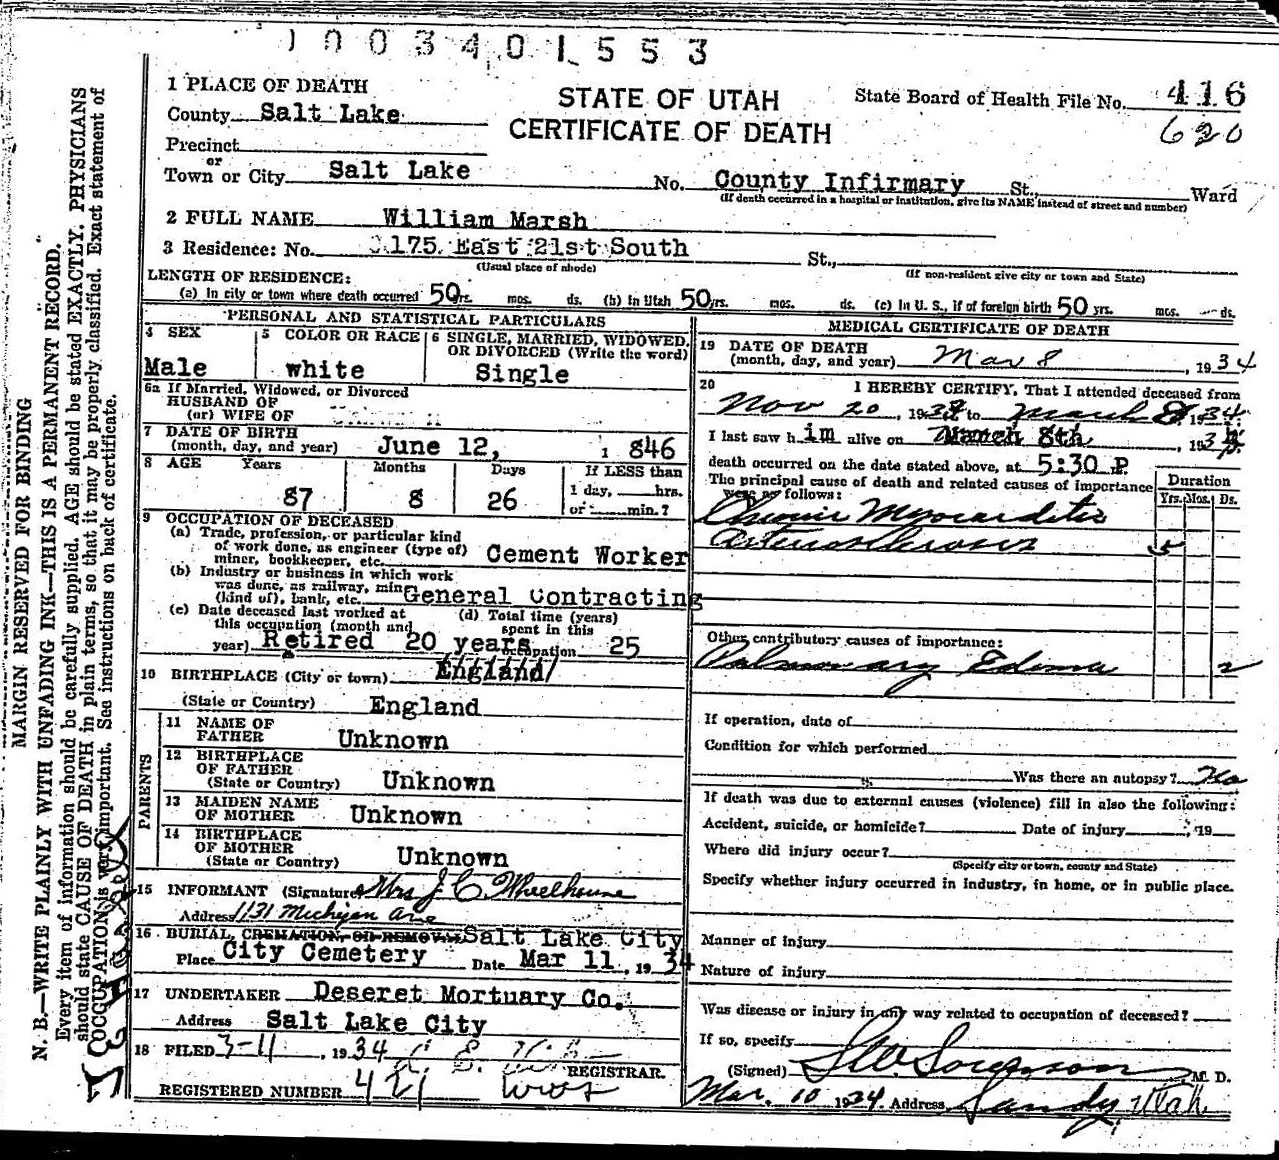 1003401553
1 PLACE OF DEATH
STATE OF UTAH
CERTIFICATE OF DEATH
State Board of Health File No. 416
620
County Salt Lake
Precinct
or
Town or City Salt Lake No. County Infirmary St., Ward
(If death occurred in a hospital or institution, give its NAME instead of street and number)
2 FULL NAME William Marsh
3 Residence: No. 175 East 21st South St.,
(Usual place of abode) (If non-resident give city or town and State)
LENGTH OF RESIDENCE:
(a) In city or town where death occurred 50 yrs. mos. ds. (b) In Utah 50 yrs. mos. ds. (c) In U. S., if of foreign birth 50 yrs. mos. ds.
PERSONAL AND STATISTICAL PARTICULARS
4 SEX
Male
5 COLOR OR RACE
white
6 SINGLE, MARRIED, WIDOWED, OR DIVORCED (Write the word)
Single
6a If Married, Widowed, or Divorced
HUSBAND OF
(or) WIFE OF
7 DATE OF BIRTH
(month, day, and year) June 12, 1846
8 AGE Years Months Days If LESS than
87 8 26 1 day, hrs.
or min.?
9 OCCUPATION OF DECEASED
(a) Trade, profession, or particular kind
of work done, as engineer (type of)
miner, bookkeeper, etc. Cement Worker
(b) Industry or business in which work
was done, as railway, mine
(kind of), bank, etc. General Contracting
(c) Date deceased last worked at
this occupation (month and
year) Retired 20 years
(d) Total time (years)
spent in this
occupation 25
10 BIRTHPLACE (City or town) England
(State or Country) England
PARENTS
11 NAME OF
FATHER Unknown
12 BIRTHPLACE
OF FATHER
(State or Country) Unknown
13 MAIDEN NAME
OF MOTHER Unknown
14 BIRTHPLACE
OF MOTHER
(State or Country) Unknown
15 INFORMANT (Signature) Mrs J. C. Wheelhouse
Address 1131 Michigan Ave
16 BURIAL, CREMATION, OR REMOVAL Salt Lake City
Place City Cemetery Date Mar 11, 1934
17 UNDERTAKER Deseret Mortuary Co.
Address Salt Lake City
18 FILED 3-11, 1934
REGISTRAR.
REGISTERED NUMBER 421
MEDICAL CERTIFICATE OF DEATH
19 DATE OF DEATH
(month, day, and year) Mar 8, 1934
20 I HEREBY CERTIFY, That I attended deceased from
Nov 20, 193 to March 8, 1934
I last saw him alive on March 8th 193
death occurred on the date stated above, at 5:30 P.
The principal cause of death and related causes of importance
were as follows:
Duration
Yrs. Mos. Ds.
Chronic Myocarditis
Arteriosclerosis 5
Other contributory causes of importance:
Pulmonary Edema 2
If operation, date of
Condition for which performed
Was there an autopsy? No
If death was due to external causes (violence) fill in also the following:
Accident, suicide, or homicide? Date of injury 19
Where did injury occur?
(Specify city or town, county and State)
Specify whether injury occurred in industry, in home, or in public place.
Manner of injury
Nature of injury
Was disease or injury in any way related to occupation of deceased?
If so, specify
(Signed) Sorenson M. D.
Mar. 10 1934 Address Sandy, Utah
MARGIN RESERVED FOR BINDING
N. B.—WRITE PLAINLY WITH UNFADING INK—THIS IS A PERMANENT RECORD.
Every item of information should be carefully supplied. AGE should be stated EXACTLY. PHYSICIANS
should state CAUSE OF DEATH in plain terms, so that it may be properly classified. Exact statement of
OCCUPATION is very important. See instructions on back of certificate.